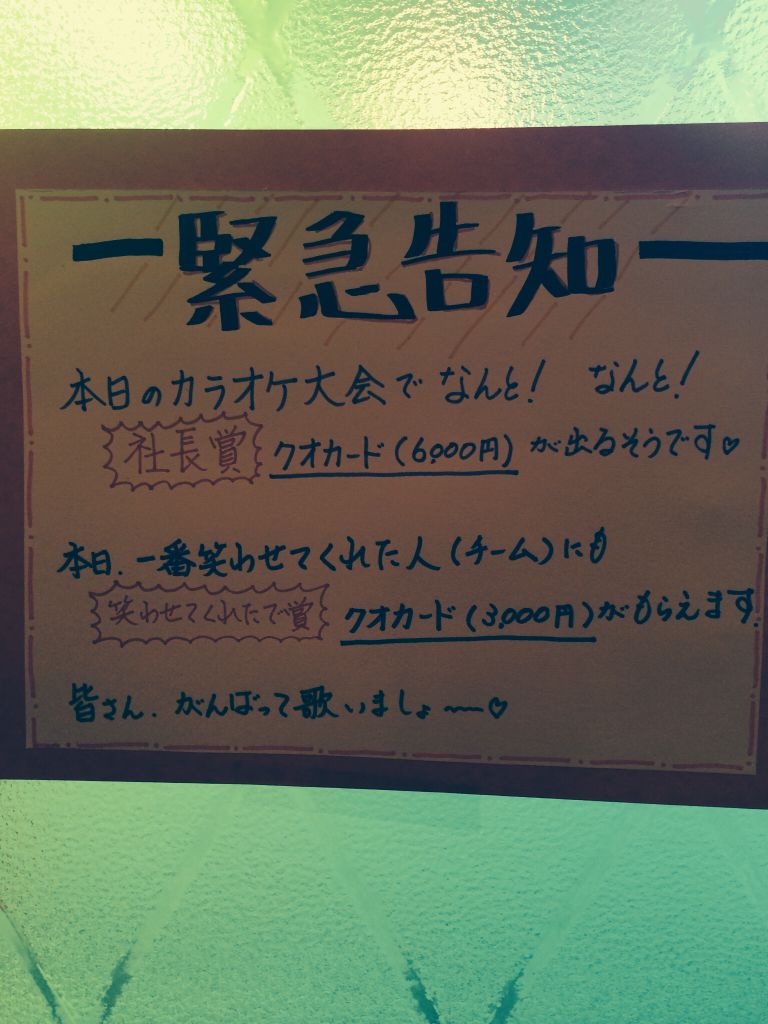 ー緊急告知ー
本日のカラオケ大会でなんと! なんと!
社長賞 クオカード(6,000円)が出るそうです♡
本日.一番笑わせてくれた人(チーム)にも
笑わせてくれたで賞 クオカード(3,000円)がもらえます.
皆さん.がんばって歌いましょ〜♡